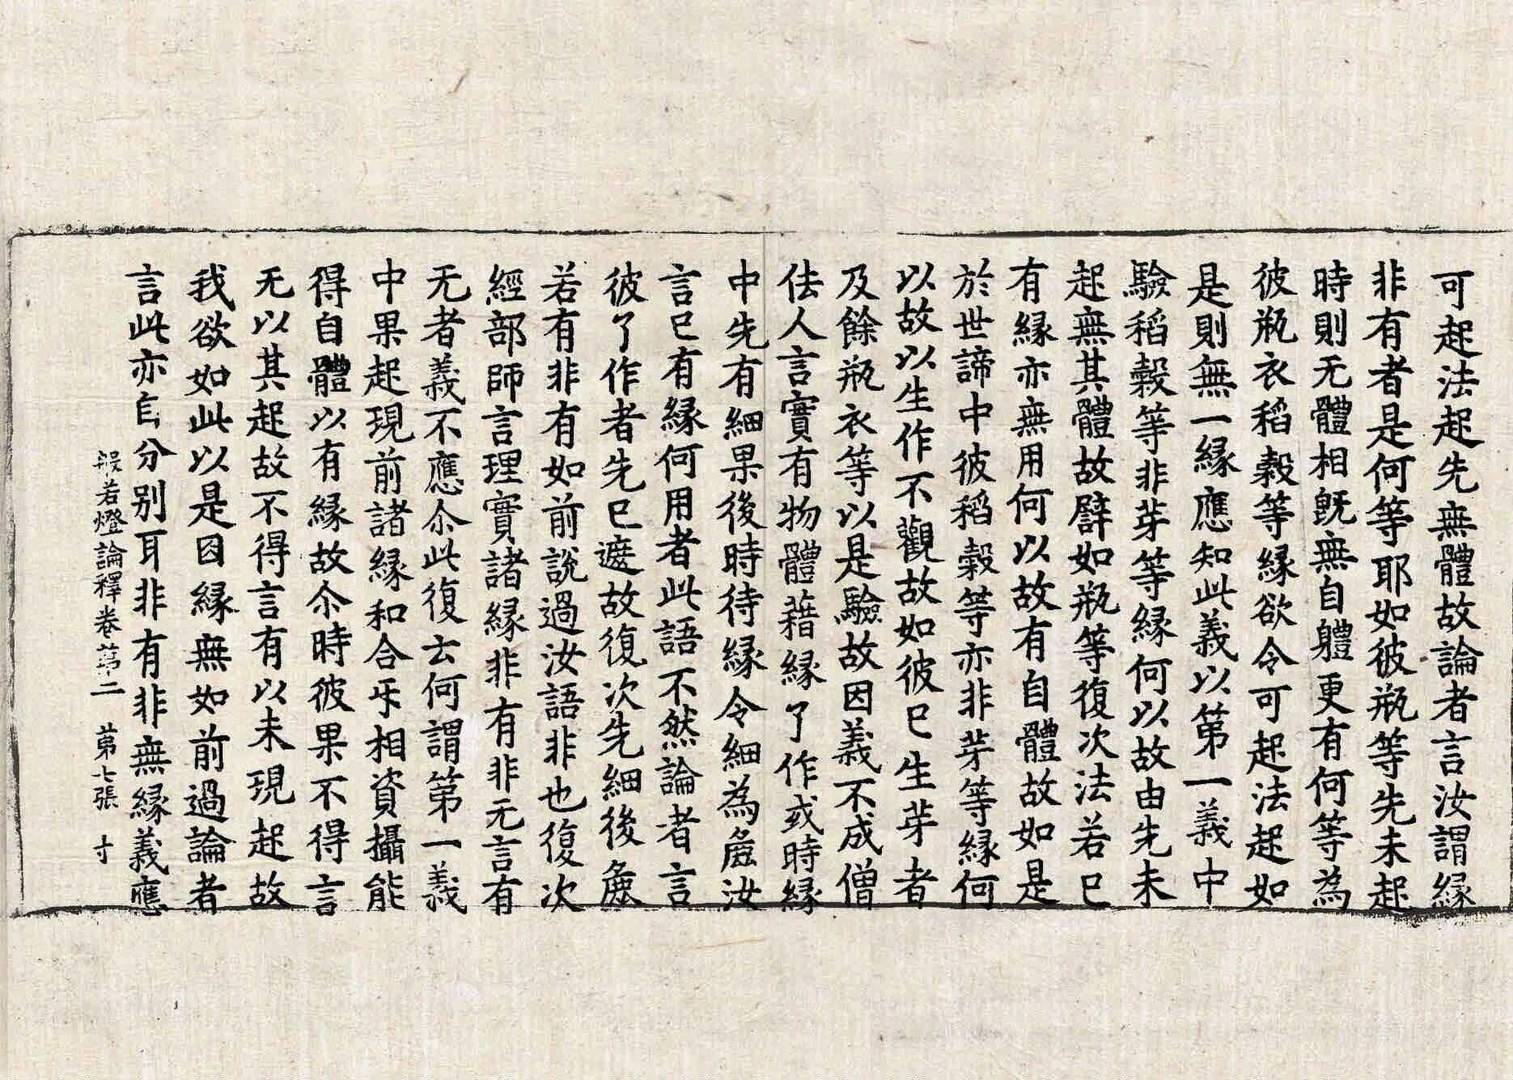 可起法起先無體故論者言汝謂緣
非有者是何等耶如彼瓶等先未起
時則无體相旣無自體更有何等為
彼瓶衣稻穀等緣欲令可起法起如
是則無一緣應知此義以第一義中
驗稻穀等非芽等緣何以故由先未
起無其體故譬如瓶等復次法若已
有緣亦無用何以故有自體故如是
於世諦中彼稻穀等亦非芽等緣何
以故以生作不觀故如彼已生芽者
及餘瓶衣等以是驗故因義不成僧
佉人言實有物體藉緣了作或時緣
中先有細果後時待緣令細為麁汝
言已有緣何用者此語不然論者言
彼了作者先已遮故復次先細後麁
若有非有如前說過汝語非也復次
經部師言理實諸緣非有非无言有
无者義不應尒此復云何謂第一義
中果起現前諸緣和合㸦相資攝能
得自體以有緣故尒時彼果不得言
无以其起故不得言有以未現起故
我欲如此以是因緣無如前過論者
言此亦㠯分別耳非有非無緣義應
般若燈論釋卷第二 第七張 寸